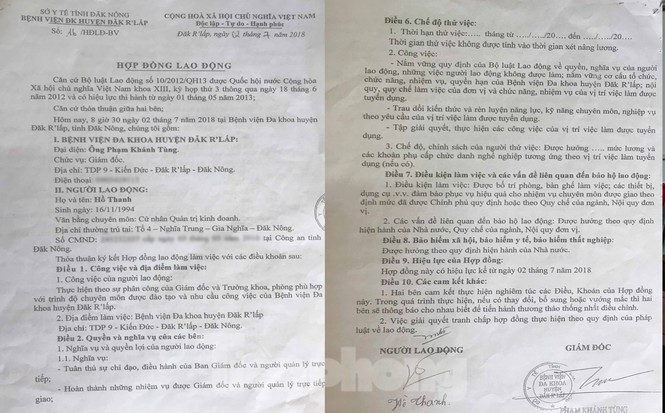 SỞ Y TẾ TỈNH ĐĂK NÔNG
BỆNH VIỆN ĐK HUYỆN ĐĂK R'LẤP
Số: /HĐLĐ-BV
CỘNG HOÀ XÃ HỘI CHỦ NGHĨA VIỆT NAM
Độc lập - Tự do - Hạnh phúc
Đăk R'lấp, ngày 02 tháng 7 năm 2018
HỢP ĐỒNG LAO ĐỘNG
Căn cứ Bộ luật Lao động số 10/2012/QH13 được Quốc hội nước Cộng hòa
Xã hội chủ nghĩa Việt Nam khoá XIII, kỳ họp thứ 3 thông qua ngày 18 tháng 6
năm 2012 và có hiệu lực thi hành từ ngày 01 tháng 05 năm 2013;
Căn cứ thỏa thuận giữa hai bên;
Hôm nay, 8 giờ 30 ngày 02 tháng 7 năm 2018 tại Bệnh viện Đa khoa huyện
Đăk R'lấp, tỉnh Đăk Nông, chúng tôi gồm:
I. BỆNH VIỆN ĐA KHOA HUYỆN ĐĂK R'LẤP:
Đại diện: Ông Phạm Khánh Tùng
Chức vụ: Giám đốc.
Địa chỉ: TDP 9 - Kiến Đức - Đăk R'Lấp - Đăk Nông.
Điện thoại:
II. NGƯỜI LAO ĐỘNG:
Họ và tên: Hồ Thanh
Sinh ngày: 16/11/1994
Văn bằng chuyên môn: Cử nhân Quản trị kinh doanh.
Địa chỉ thường trú tại: Tổ 4 – Nghĩa Trung – Gia Nghĩa – Đăk Nông.
Số CMND: tại Công an tỉnh
Đăk Nông.
Thỏa thuận ký kết Hợp đồng lao động làm việc với các điều khoản sau:
Điều 1. Công việc và địa điểm làm việc:
1. Công việc của người lao động:
Thực hiện theo sự phân công của Giám đốc và Trưởng khoa, phòng phù hợp
với trình độ chuyên môn được đào tạo và nhu cầu công việc của Bệnh viện Đa
khoa huyện Đăk R'lấp.
2. Địa điểm làm việc: Bệnh viện Đa khoa huyện Đăk R'lấp
Địa chỉ: TDP 9 - Kiến Đức - Đăk R'Lấp - Đăk Nông.
Điều 2. Quyền và nghĩa vụ của các bên:
1. Nghĩa vụ và quyền lợi của người lao động:
1.1. Nghĩa vụ:
- Tuân thủ sự chỉ đạo, điều hành của Ban Giám đốc và người quản lý trực
tiếp;
- Hoàn thành những nhiệm vụ được Giám đốc và người quản lý trực tiếp
giao;
Điều 6. Chế độ thử việc:
1. Thời hạn thử việc:..... tháng từ ..../..../20.... đến ..../..../20....
Thời gian thử việc không được tính vào thời gian xét nâng lương.
2. Công việc:
- Nắm vững quy định của Bộ luật Lao động về quyền, nghĩa vụ của người
lao động, những việc người lao động không được làm; nắm vững cơ cấu tổ chức,
chức năng, nhiệm vụ, quyền hạn của Bệnh viện Đa khoa huyện Đăk R'lấp; nội
quy, quy chế làm việc của đơn vị và chức năng, nhiệm vụ của vị trí việc làm được
tuyển dụng.
- Trau dồi kiến thức và rèn luyện năng lực, kỹ năng chuyên môn, nghiệp vụ
theo yêu cầu của vị trí việc làm được tuyển dụng.
- Tập giải quyết, thực hiện các công việc của vị trí việc làm được tuyển
dụng.
3. Chế độ, chính sách của người thử việc: Được hưởng ..... mức lương và
các khoản phụ cấp chức danh nghề nghiệp tương ứng theo vị trí việc làm tuyển
dụng (nếu có).
Điều 7. Điều kiện làm việc và các vấn đề liên quan đến bảo hộ lao động:
1. Điều kiện làm việc: Được bố trí phòng, bàn ghế làm việc; các thiết bị,
dụng cụ .v.v. đảm bảo phục vụ hiệu quả cho nhiệm vụ chuyên môn được giao theo
định mức đã được Chính phủ quy định hoặc theo Quy chế của ngành, Nội quy đơn
vị.
2. Các vấn đề liên quan đến bảo hộ lao động: Được hưởng theo quy định
hiện hành của Nhà nước, Quy chế của ngành, Nội quy đơn vị.
Điều 8. Bảo hiểm xã hội, bảo hiểm y tế, bảo hiểm thất nghiệp:
Được hưởng theo quy định hiện hành của Nhà nước.
Điều 9. Hiệu lực của Hợp đồng:
Hợp đồng này có hiệu lực kể từ ngày 02 tháng 7 năm 2018
Điều 10. Các cam kết khác:
1. Hai bên cam kết thực hiện nghiêm túc các Điều, Khoản của Hợp đồng
này. Trong quá trình thực hiện, nếu có thay đổi, bổ sung hoặc vướng mắc thì hai
bên sẽ thông báo cho nhau biết để tiến hành thương thảo thống nhất điều chỉnh.
2. Việc giải quyết tranh chấp hợp đồng thực hiện theo quy định của pháp
luật về lao động.
NGƯỜI LAO ĐỘNG
GIÁM ĐỐC
BỆNH VIỆN
ĐA KHOA
HUYỆN
ĐĂK R'LẤP
Hồ Thanh
PHẠM KHÁNH TÙNG